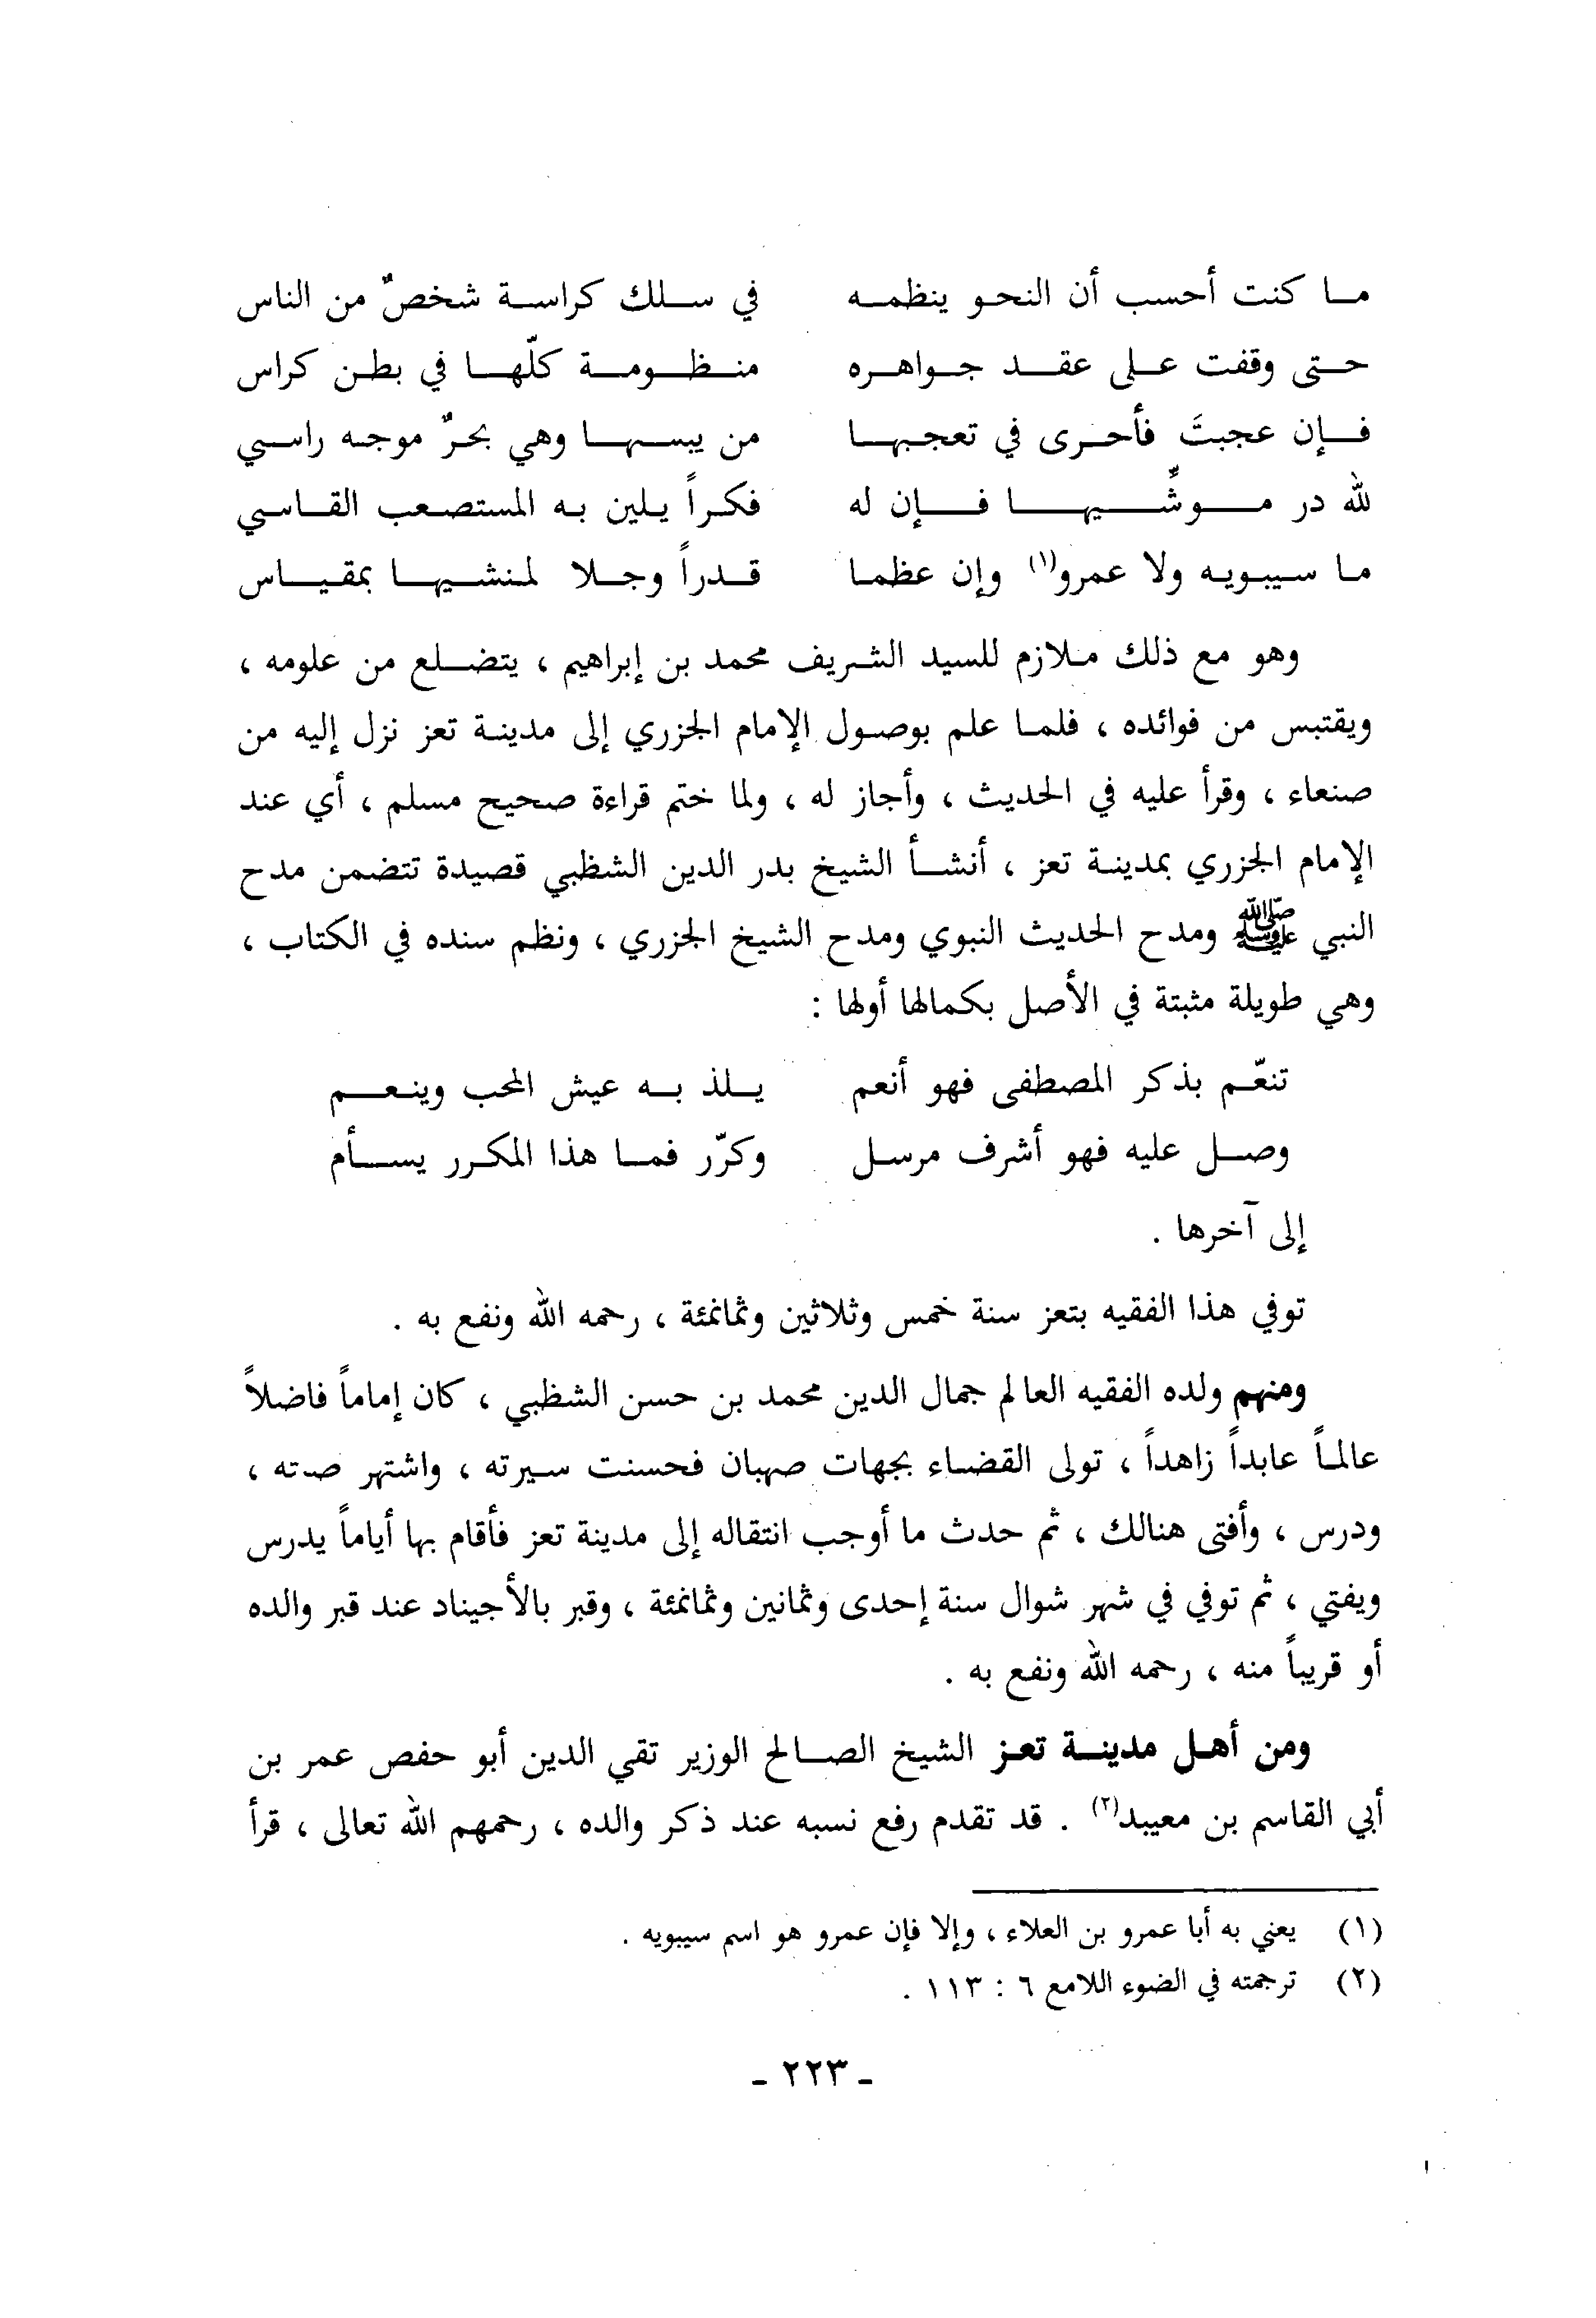 ما كنت أحسب أن النحو ينظمه في سلك كراسة شخصٌ من الناس
حتى وقفت على عقد جواهره منظومة كلّها في بطن كراس
فإن عجبتَ فأحرى في تعجبها من يبسها وهي بحرٌ موجه راسي
لله در موشِّيها فإن له فكراً يلين به المستصعب القاسي
ما سيبويه ولا عمرو(١) وإن عظما قدراً وجلا لمنشيها بمقياس
وهو مع ذلك ملازم للسيد الشريف محمد بن إبراهيم ، يتضلع من علومه ،
ويقتبس من فوائده ، فلما علم بوصول الإمام الجزري إلى مدينة تعز نزل إليه من
صنعاء ، وقرأ عليه في الحديث ، وأجاز له ، ولما ختم قراءة صحيح مسلم ، أي عند
الإمام الجزري بمدينة تعز ، أنشأ الشيخ بدر الدين الشظبي قصيدة تتضمن مدح
النبي ﷺ ومدح الحديث النبوي ومدح الشيخ الجزري ، ونظم سنده في الكتاب ،
وهي طويلة مثبتة في الأصل بكمالها أولها :
تنعّم بذكر المصطفى فهو أنعم يلذ به عيش المحب وينعم
وصل عليه فهو أشرف مرسل وكرّر فما هذا المكرر يسأم
إلى آخرها .
توفي هذا الفقيه بتعز سنة خمس وثلاثين وثمانمئة ، رحمه الله ونفع به .
ومنهم ولده الفقيه العالم جمال الدين محمد بن حسن الشظبي ، كان إماماً فاضلاً
عالماً عابداً زاهداً ، تولى القضاء بجهات صهبان فحسنت سيرته ، واشتهر ،
ودرس ، وأفتى هنالك ، ثم حدث ما أوجب انتقاله إلى مدينة تعز فأقام بها أياماً يدرس
ويفتي ، ثم توفي في شهر شوال سنة إحدى وثمانين وثمانمئة ، وقبر بالأجيناد عند قبر والده
أو قريباً منه ، رحمه الله ونفع به .
ومن أهل مدينة تعز الشيخ الصالح الوزير تقي الدين أبو حفص عمر بن
أبي القاسم بن معيبد(٢) . قد تقدم رفع نسبه عند ذكر والده ، رحمهم الله تعالى ، قرأ
(١) يعني به أبا عمرو بن العلاء ، وإلا فإن عمرو هو اسم سيبويه .
(٢) ترجمته في الضوء اللامع ٦ : ١١٣ .
- ٢٢٣ -